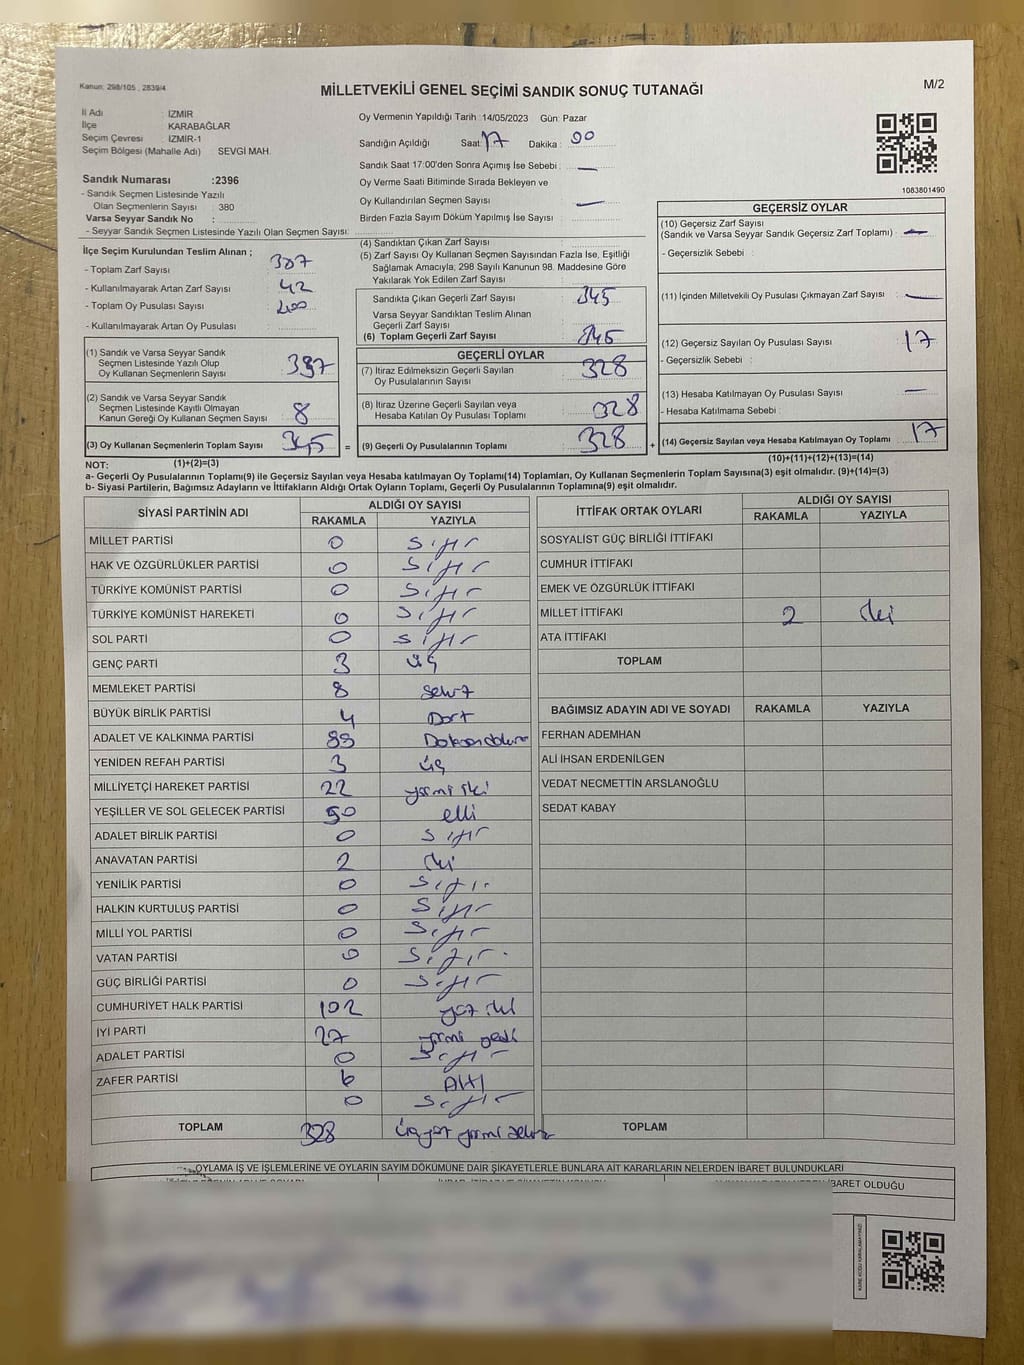 Kanun: 298/105 , 2839/4
MİLLETVEKİLİ GENEL SEÇİMİ SANDIK SONUÇ TUTANAĞI
M/2
İl Adı : İZMİR
İlçe : KARABAĞLAR
Seçim Çevresi : İZMİR-1
Seçim Bölgesi (Mahalle Adı) : SEVGİ MAH.
Sandık Numarası :2396
- Sandık Seçmen Listesinde Yazılı
Olan Seçmenlerin Sayısı : 380
Varsa Seyyar Sandık No :
- Seyyar Sandık Seçmen Listesinde Yazılı Olan Seçmen Sayısı:
Oy Vermenin Yapıldığı Tarih :14/05/2023 Gün: Pazar
Sandığın Açıldığı Saat: 17 Dakika: 00
Sandık Saat 17:00'den Sonra Açımış İse Sebebi : —
Oy Verme Saati Bitiminde Sırada Bekleyen ve
Oy Kullandırılan Seçmen Sayısı : —
Birden Fazla Sayım Döküm Yapılmış İse Sayısı :
1083801490
İlçe Seçim Kurulundan Teslim Alınan ;
- Toplam Zarf Sayısı : 387
- Kullanılmayarak Artan Zarf Sayısı : 42
- Toplam Oy Pusulası Sayısı : 400
- Kullanılmayarak Artan Oy Pusulası :
(1) Sandık ve Varsa Seyyar Sandık
Seçmen Listesinde Yazılı Olup
Oy Kullanan Seçmenlerin Sayısı
(2) Sandık ve Varsa Seyyar Sandık
Seçmen Listesinde Kayıtlı Olmayan
Kanun Gereği Oy Kullanan Seçmen Sayısı 8
(3) Oy Kullanan Seçmenlerin Toplam Sayısı 345 =
(1)+(2)=(3)
(4) Sandıktan Çıkan Zarf Sayısı :
(5) Zarf Sayısı Oy Kullanan Seçmen Sayısından Fazla İse, Eşitliği
Sağlamak Amacıyla, 298 Sayılı Kanunun 98. Maddesine Göre
Yakılarak Yok Edilen Zarf Sayısı :
Sandıkta Çıkan Geçerli Zarf Sayısı : 345
Varsa Seyyar Sandıktan Teslim Alınan
Geçerli Zarf Sayısı :
(6) Toplam Geçerli Zarf Sayısı : 345
GEÇERLİ OYLAR
(7) İtiraz Edilmeksizin Geçerli Sayılan
Oy Pusulalarının Sayısı 328
(8) İtiraz Üzerine Geçerli Sayılan veya
Hesaba Katılan Oy Pusulası Toplamı 328
(9) Geçerli Oy Pusulalarının Toplamı 328 +
GEÇERSİZ OYLAR
(10) Geçersiz Zarf Sayısı
(Sandık ve Varsa Seyyar Sandık Geçersiz Zarf Toplamı) : —
- Geçersizlik Sebebi :
(11) İçinden Milletvekili Oy Pusulası Çıkmayan Zarf Sayısı : —
(12) Geçersiz Sayılan Oy Pusulası Sayısı : 17
- Geçersizlik Sebebi :
(13) Hesaba Katılmayan Oy Pusulası Sayısı : —
- Hesaba Katılmama Sebebi :
(14) Geçersiz Sayılan veya Hesaba Katılmayan Oy Toplamı 17
(10)+(11)+(12)+(13)=(14)
NOT:
a- Geçerli Oy Pusulalarının Toplamı(9) ile Geçersiz Sayılan veya Hesaba katılmayan Oy Toplamı(14) Toplamları, Oy Kullanan Seçmenlerin Toplam Sayısına(3) eşit olmalıdır. (9)+(14)=(3)
b- Siyasi Partilerin, Bağımsız Adayların ve İttifakların Aldığı Ortak Oyların Toplamı, Geçerli Oy Pusulalarının Toplamına(9) eşit olmalıdır.
SİYASİ PARTİNİN ADI ALDIĞI OY SAYISI
RAKAMLA YAZIYLA
MİLLET PARTİSİ 0 Sıfır
HAK VE ÖZGÜRLÜKLER PARTİSİ 0 Sıfır
TÜRKİYE KOMÜNİST PARTİSİ 0 Sıfır
TÜRKİYE KOMÜNİST HAREKETİ 0 Sıfır
SOL PARTİ 0 Sıfır
GENÇ PARTİ 3 üç
MEMLEKET PARTİSİ 8 Sekiz
BÜYÜK BİRLİK PARTİSİ 4 Dört
ADALET VE KALKINMA PARTİSİ
YENİDEN REFAH PARTİSİ 3 üç
MİLLİYETÇİ HAREKET PARTİSİ 22 yirmi iki
YEŞİLLER VE SOL GELECEK PARTİSİ 50 elli
ADALET BİRLİK PARTİSİ 0 Sıfır
ANAVATAN PARTİSİ 2 iki
YENİLİK PARTİSİ 0 Sıfır
HALKIN KURTULUŞ PARTİSİ 0 Sıfır
MİLLİ YOL PARTİSİ 0 Sıfır
VATAN PARTİSİ 0 Sıfır
GÜÇ BİRLİĞİ PARTİSİ 0 Sıfır
CUMHURİYET HALK PARTİSİ 102 yüz iki
İYİ PARTİ 27 yirmi yedi
ADALET PARTİSİ 0 Sıfır
ZAFER PARTİSİ 6 Altı
0 Sıfır
TOPLAM 328 Üçyüz yirmi sekiz
İTTİFAK ORTAK OYLARI ALDIĞI OY SAYISI
RAKAMLA YAZIYLA
SOSYALİST GÜÇ BİRLİĞİ İTTİFAKI
CUMHUR İTTİFAKI
EMEK VE ÖZGÜRLÜK İTTİFAKI
MİLLET İTTİFAKI 2 iki
ATA İTTİFAKI
TOPLAM
BAĞIMSIZ ADAYIN ADI VE SOYADI RAKAMLA YAZIYLA
FERHAN ADEMHAN
ALİ İHSAN ERDENİLGEN
VEDAT NECMETTİN ARSLANOĞLU
SEDAT KABAY
TOPLAM
OYLAMA İŞ VE İŞLEMLERİNE VE OYLARIN SAYIM DÖKÜMÜNE DAİR ŞİKAYETLERLE BUNLARA AİT KARARLARIN NELERDEN İBARET BULUNDUKLARI
İBARET OLDUĞU